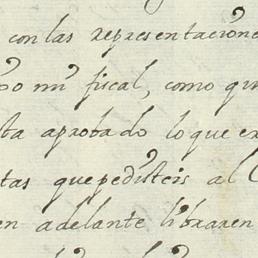 con las representacione
mi fiscal, como qu
ta aprobado lo que ex
tas que pedisteis al C
en adelante libraren